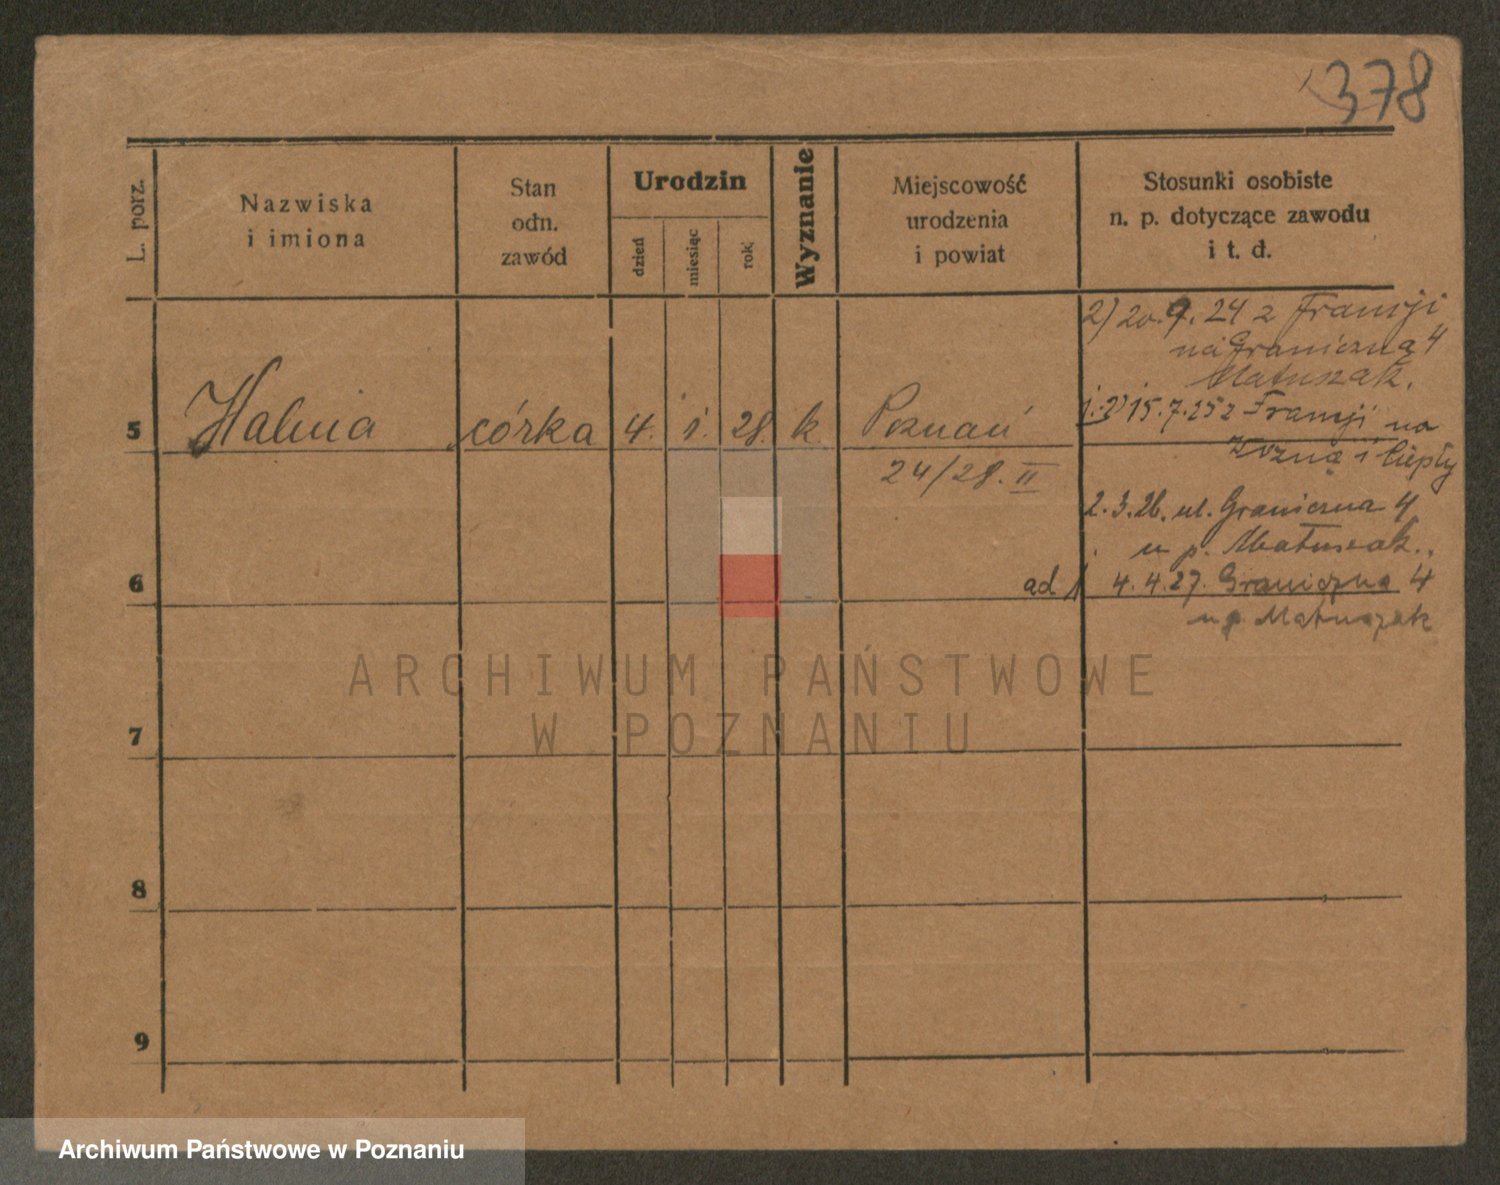 378
L. porz.
Nazwiska
i imiona
Stan
odn.
zawód
Urodzin
dzień
miesiąc
rok
Wyznanie
Miejscowość
urodzenia
i powiat
Stosunki osobiste
n. p. dotyczące zawodu
i t. d.
2) 20. 9. 24 z Francji
na Graniczną 4
Matuszak.
15. 7. 25 z Francji na
i Ciepły
5 Halina córka 4. 1. 28. k. Poznań
24/28. II
2. 3. 26. ul. Graniczna 4
u p. Matuszak.
6
ad 1 4. 4. 27. Graniczna 4
u p. Matuszak
ARCHIWUM PAŃSTWOWE
W POZNANIU
7
8
9
Archiwum Państwowe w Poznaniu